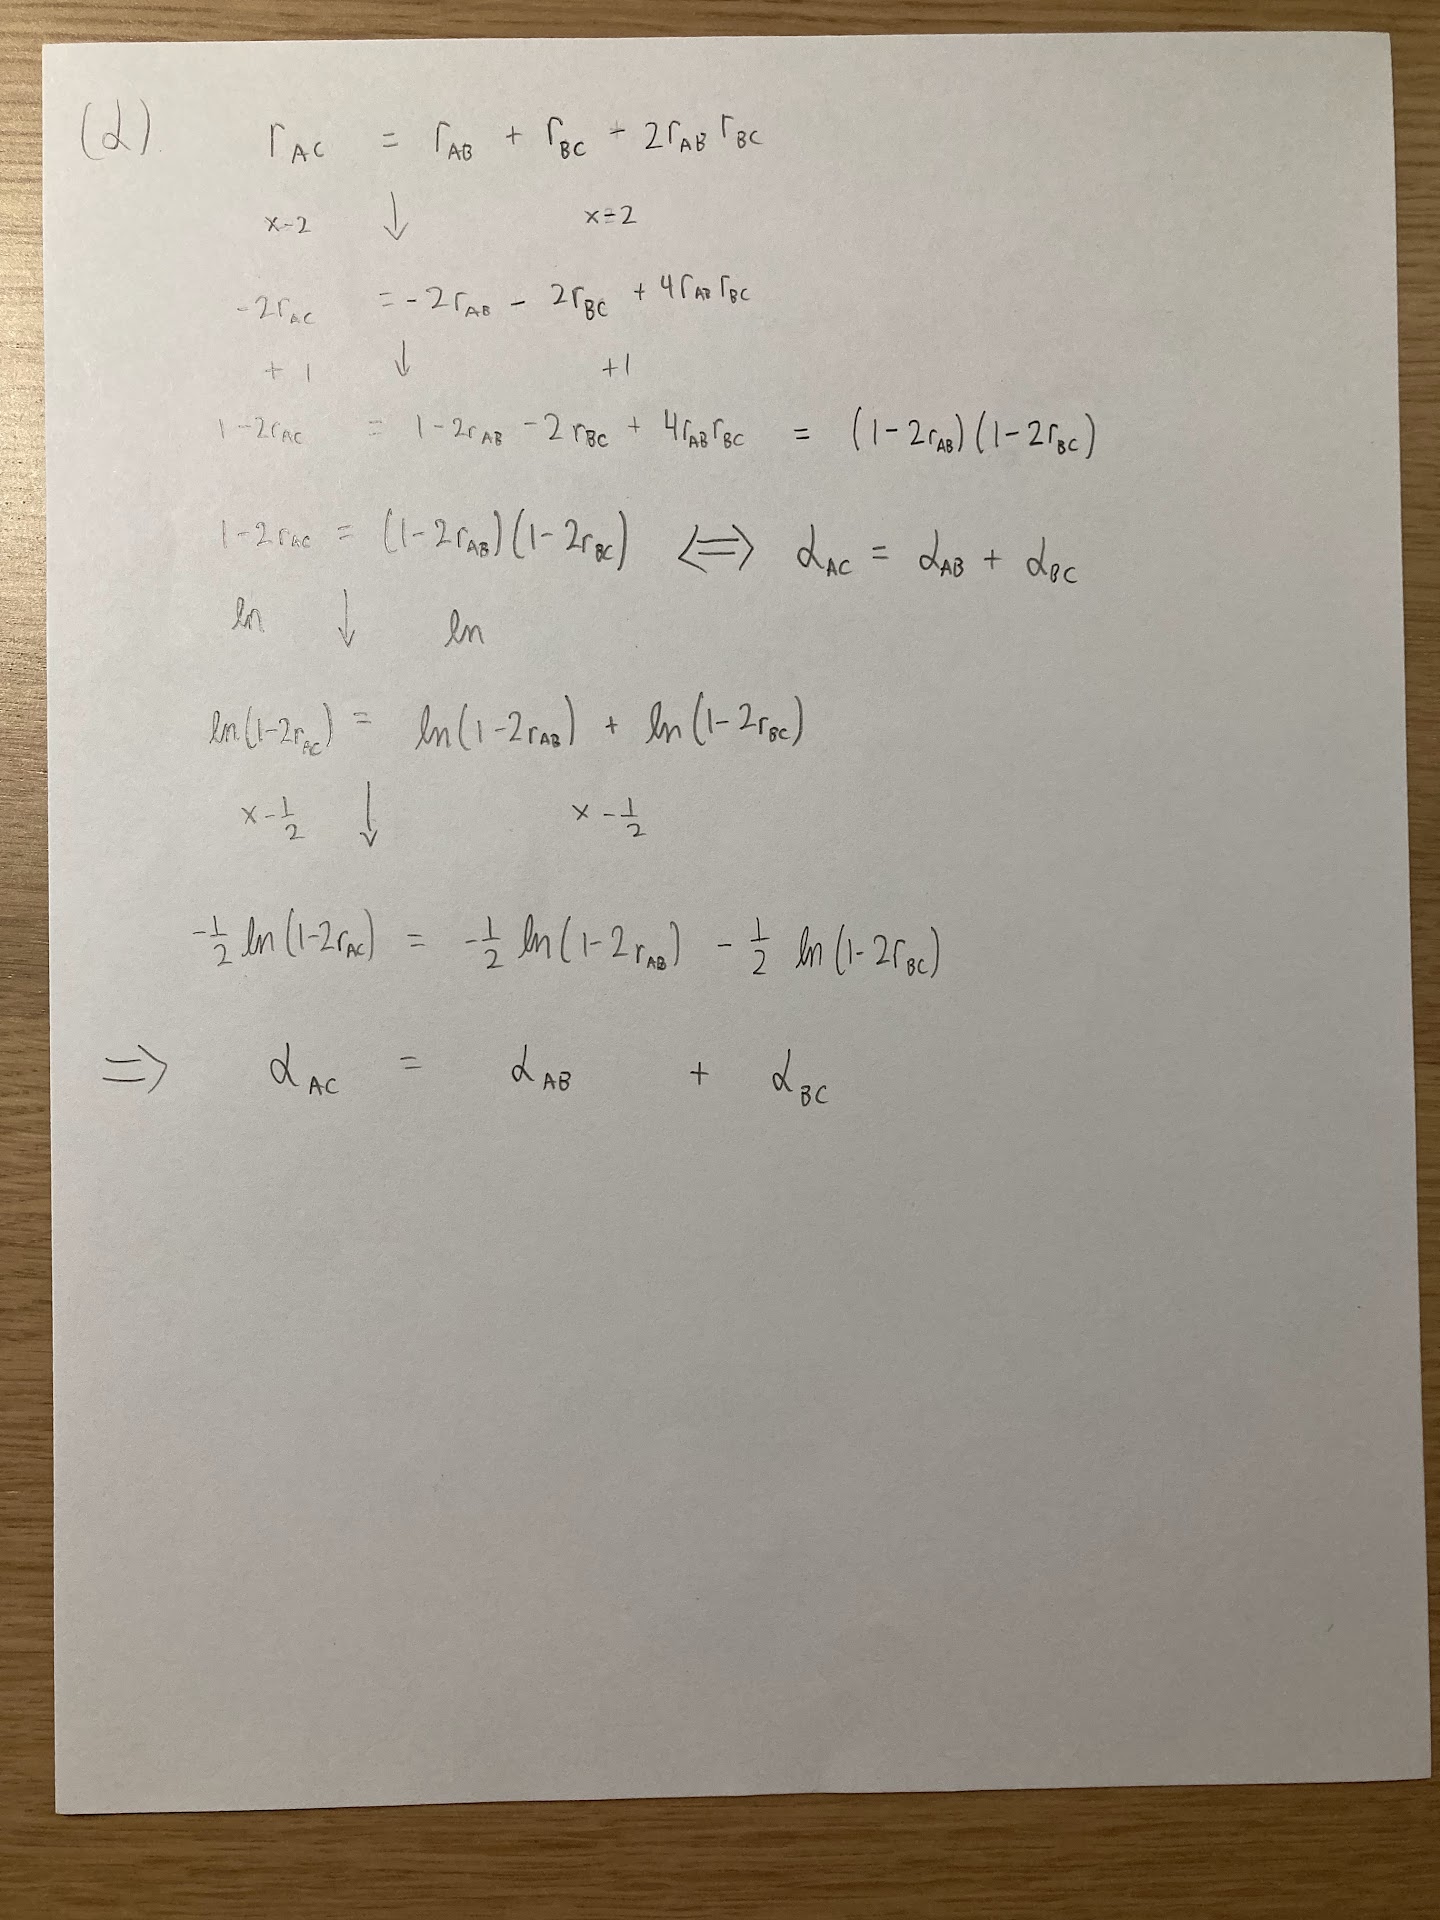 (d). r_AC = r_AB + r_BC - 2r_AB r_BC
x-2 ↓ x-2
-2r_AC = -2r_AB - 2r_BC + 4r_AB r_BC
+1 ↓ +1
1-2r_AC = 1-2r_AB -2r_BC + 4r_AB r_BC = (1-2r_AB)(1-2r_BC)
1-2r_AC = (1-2r_AB)(1-2r_BC) ⟺ d_AC = d_AB + d_BC
ln ↓ ln
ln(1-2r_AC) = ln(1-2r_AB) + ln(1-2r_BC)
x-1/2 ↓ x-1/2
-1/2 ln(1-2r_AC) = -1/2 ln(1-2r_AB) - 1/2 ln(1-2r_BC)
⟹ d_AC = d_AB + d_BC